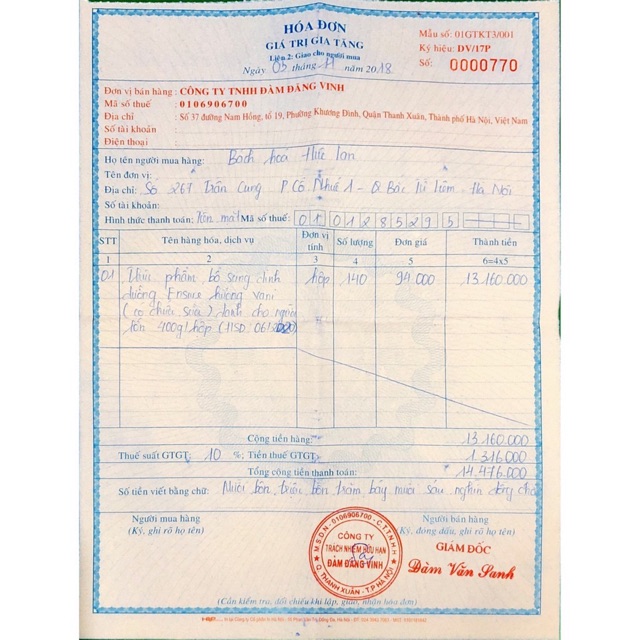 HÓA ĐƠN
GIÁ TRỊ GIA TĂNG
Liên 2: Giao cho người mua
Ngày 05 tháng 11 năm 2018
Mẫu số: 01GTKT3/001
Ký hiệu: DV/17P
Số: 0000770
Đơn vị bán hàng: CÔNG TY TNHH ĐÀM ĐĂNG VINH
Mã số thuế : 0106906700
Địa chỉ : Số 37 đường Nam Hồng, tổ 19, Phường Khương Đình, Quận Thanh Xuân, Thành phố Hà Nội, Việt Nam
Số tài khoản :
Điện thoại :
Họ tên người mua hàng: Bách hoá Hữu Lan
Tên đơn vị:
Địa chỉ: Số 267 Trần Cung P Cổ Nhuế 1 - Q Bắc Từ Liêm - Hà Nội
Số tài khoản:
Hình thức thanh toán: Tiền mặt Mã số thuế: 0 1 0 1 2 8 5 2 9 5
STT Tên hàng hóa, dịch vụ Đơn vị tính Số lượng Đơn giá Thành tiền
1 2 3 4 5 6=4x5
01 Thực phẩm bổ sung dinh hộp 140 94.000 13.160.000
dưỡng Ensure hương vani
(có chứa sữa) dành cho người
lớn 400g/hộp (HSD
Cộng tiền hàng: 13.160.000
Thuế suất GTGT: 10 %; Tiền thuế GTGT: 1.316.000
Tổng cộng tiền thanh toán: 14.476.000
Số tiền viết bằng chữ: Mười bốn triệu bốn trăm bảy mươi sáu nghìn đồng chẵn
Người mua hàng
(Ký, ghi rõ họ tên)
Người bán hàng
(Ký, đóng dấu, ghi rõ họ tên)
M.S.D.N: 0106906700 - C.T.T.N.H.H
CÔNG TY
TRÁCH NHIỆM HỮU HẠN
ĐÀM ĐĂNG VINH
Q. THANH XUÂN - T.P HÀ NỘI
GIÁM ĐỐC
Đàm Văn Sanh
(Cần kiểm tra, đối chiếu khi lập, giao, nhận hóa đơn)